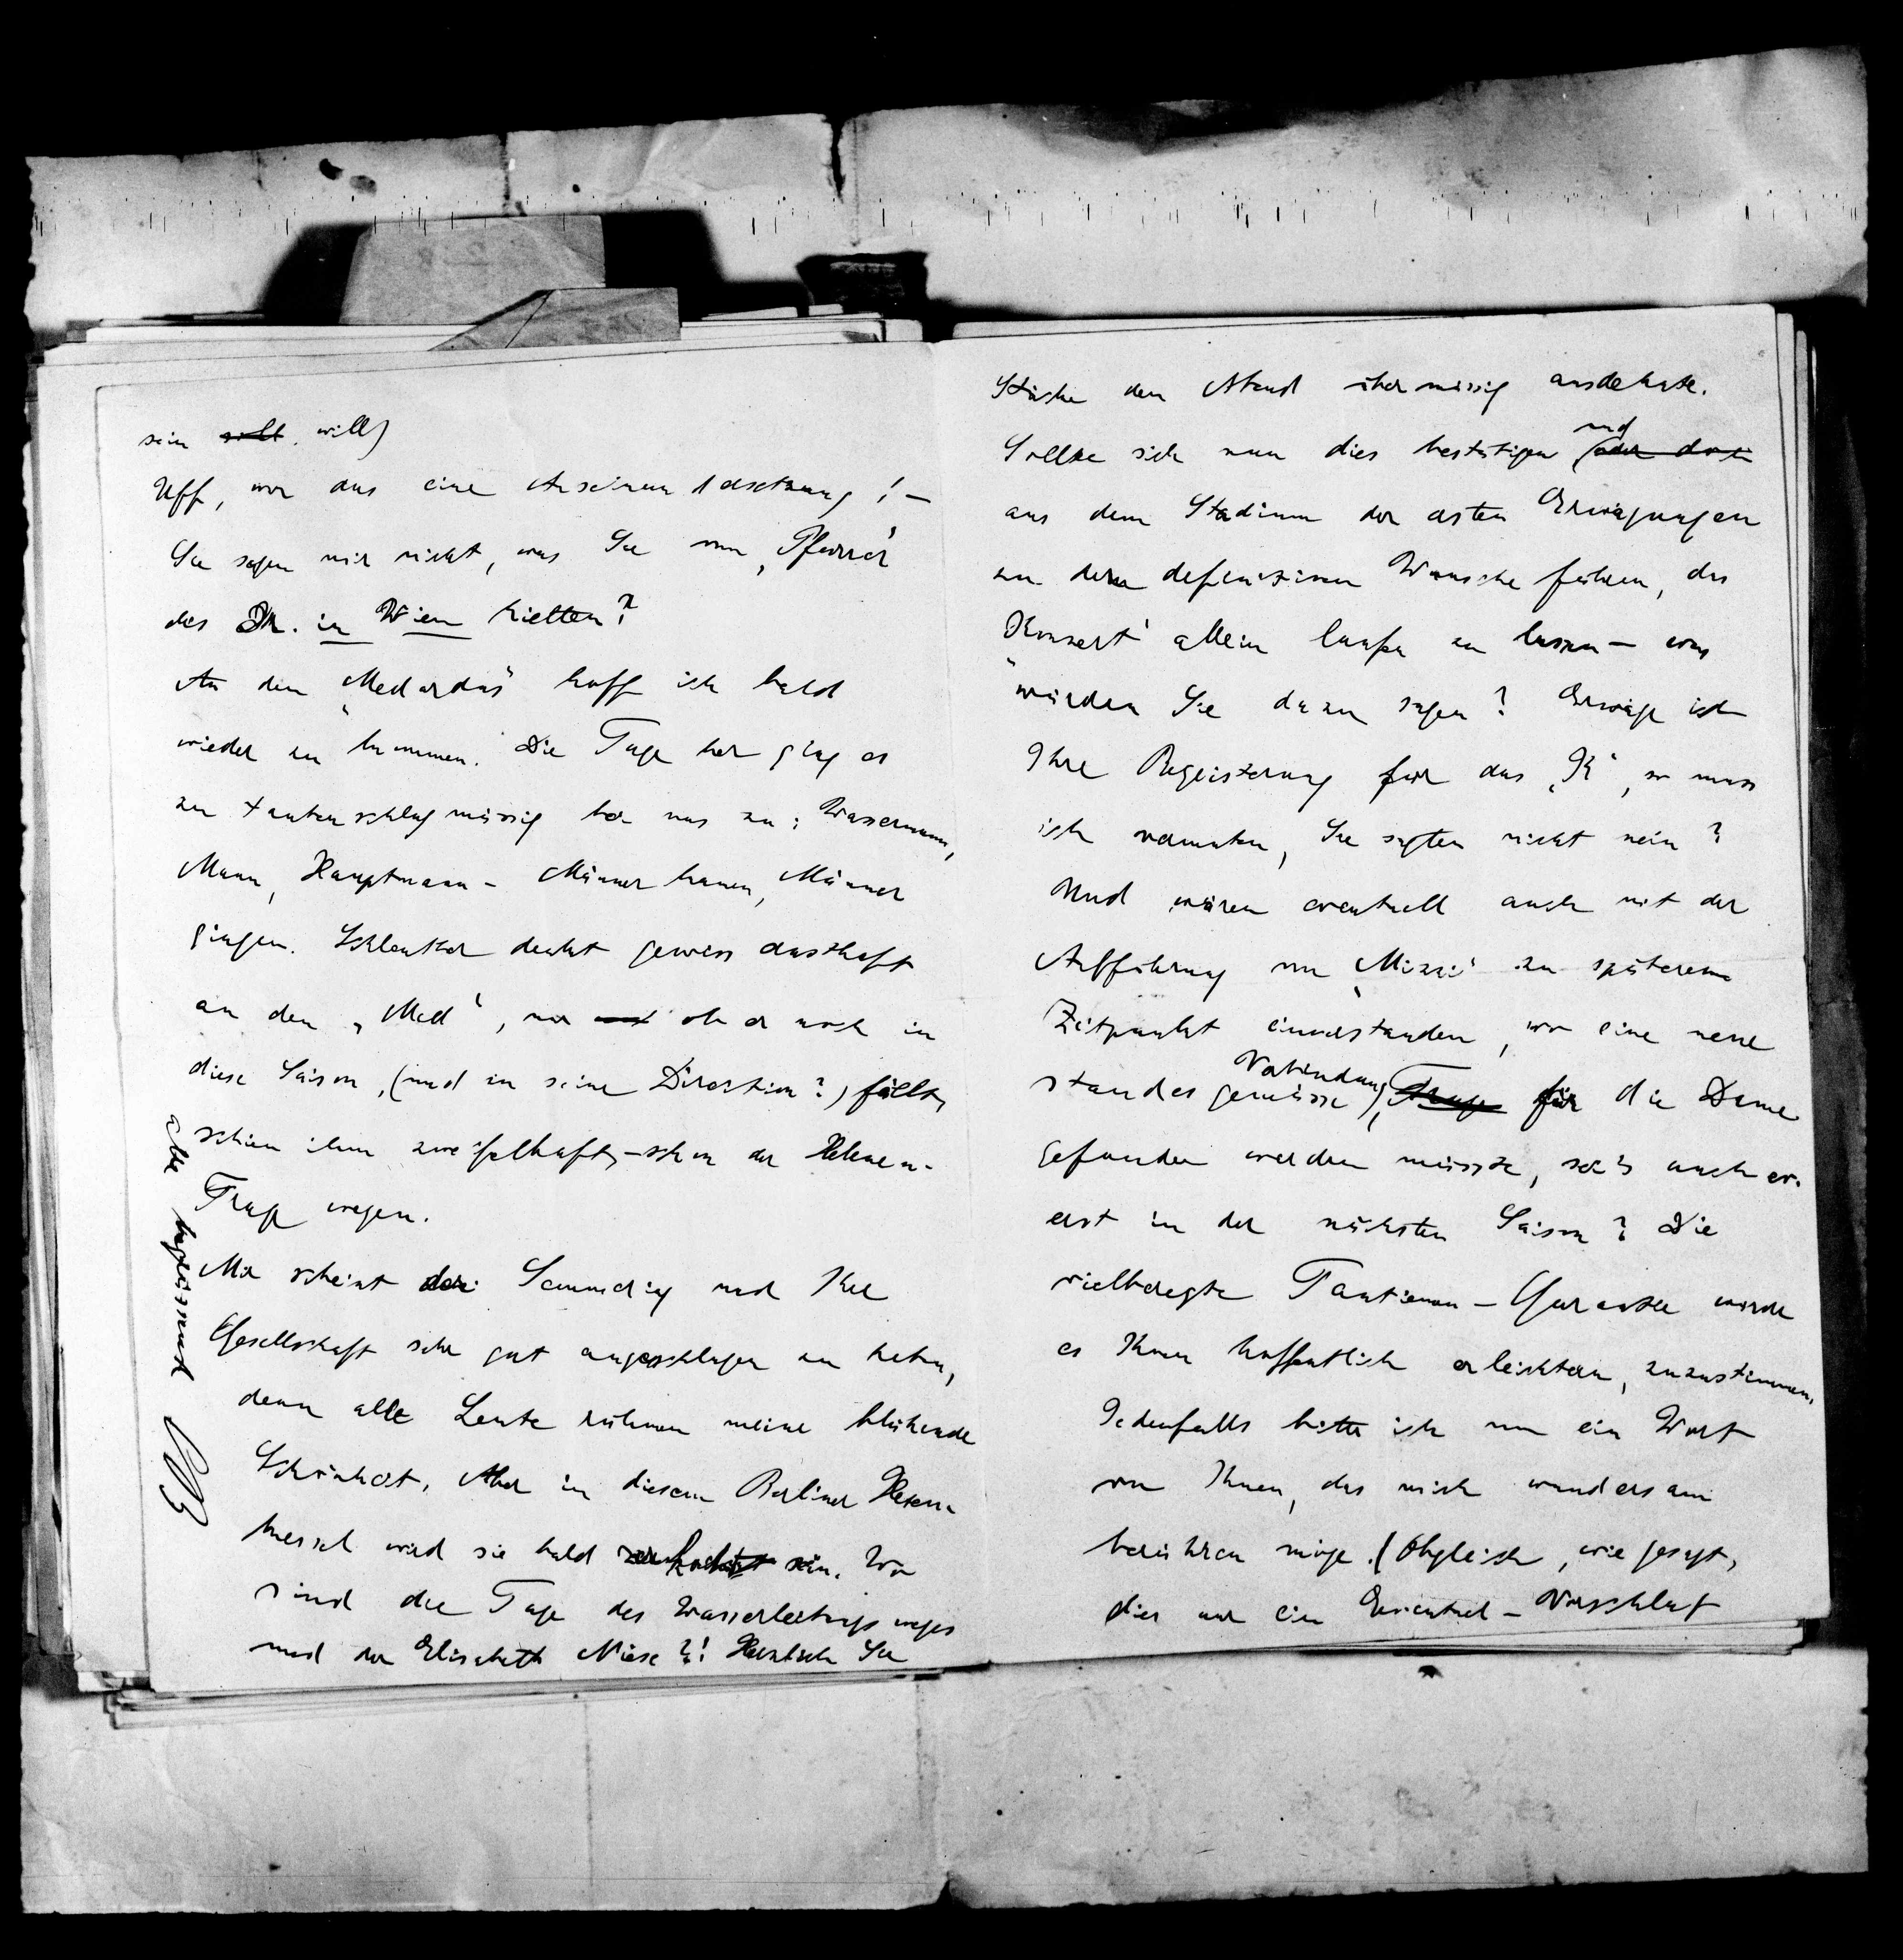 Stücke den Abend übermässig ausdehnte.
Sollte sich nun dies bestätigen und (oder doch
aus dem Stadium der ersten Erwägungen
zu dem definitiven Wunsche führen, das
„Konzert“ allein laufen zu lassen – was
würden Sie dazu sagen? Erwäge ich
Ihre Begeisterung für das „K“, so muss
ich vermuten, Sie sagten nicht nein?
Und wären eventuell auch mit der
Aufführung von „Mizzi“ zu späterem
Zeitpunkt einverstanden, wo eine neue
standesgemässe Verbindung, Frage für die Dame
gefunden werden müsste, sei's auch ev.
erst in der nächsten Saison? Die
vielberegte Tantiemen-Garantie würde
es Ihnen hoffentlich erleichtern, zuzustimmen.
Jedenfalls bitte ich um ein Wort
von Ihnen, das mich wundersam
berühren möge. (Obgleich, wie gesagt,
dies nur ein Eventual-Vorschlag
sein soll will)
Uff, war das eine Auseinandersetzung! –
Sie sagen mir nicht, was Sie vom „Pfarrer“
des Dr. in Wien hielten?
An den „Medardus“ hoff ich bald
wieder zu kommen. Die Tage her ging es
zu taubenschlagmässig bei uns zu: Wassermann,
Mann, Hauptmann – Männer kamen, Männer
gingen. Schlenther denkt gewiss ernsthaft
an den „Med“, nur ob er noch in
diese Saison, (und in seine Direktion?) fällt,
schien ihm zweifelhaft, – schon der Helenen-
Frage wegen.
Mir scheint der Semmering und Ihre
Gesellschaft sehr gut angeschlagen zu haben,
denn alle Leute rühmen meine blühende
Schönheit. Aber in diesem Berliner Hexen
kessel wird sie bald zerkocht sein. Wo
sind die Tage des Wasserleitungsweges
und der Elisabeth Niese?! Herzlich Sie
alle begrüssend OB